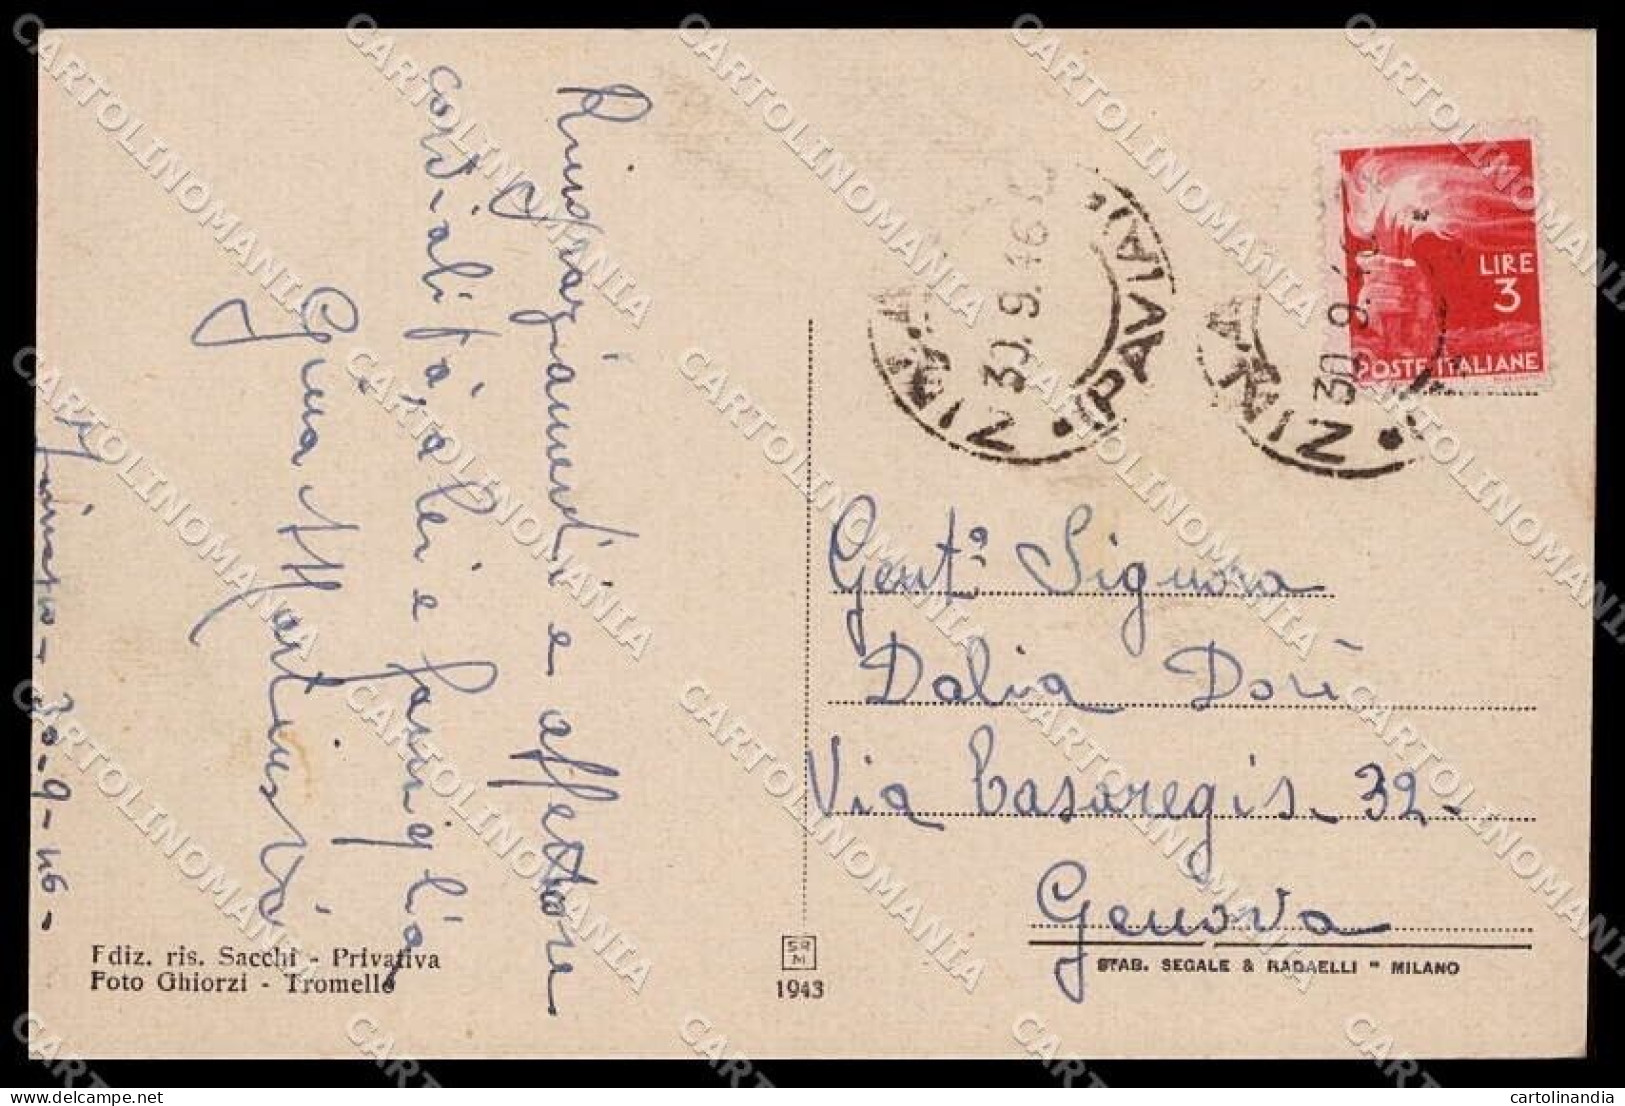 Ringraziamenti e affettuose
cordialità, a lei e famiglia
Gina
30-9-46-
Ediz. ris. Sacchi - Privativa
Foto Ghiorzi - Tromello
SR
M
1943
PAVIA
30.9.46
30.9.
LIRE
3
POSTE ITALIANE
Gent.ª Signora
Dalia Dorì
Via Casaregis - 32 -
Genova
STAB. SEGALE & RADAELLI " MILANO
CARTOLINOMANIA
cartolinandia